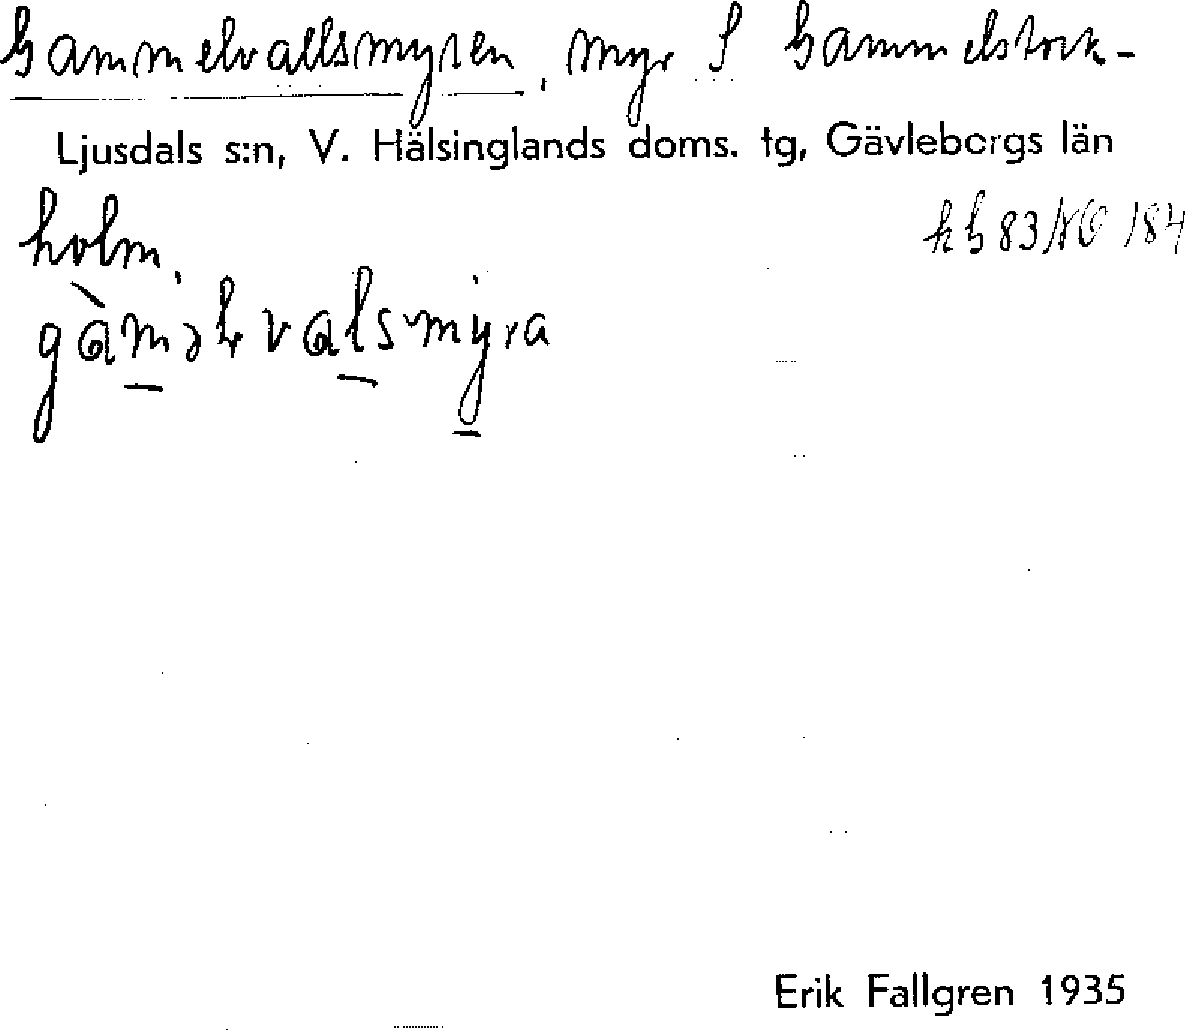 Gammelvallsmyren, myr S Gammelstork-
Ljusdals s:n, V. Hälsinglands doms. tg, Gävleborgs län
holm.
gàməlvalsmyra
Erik Fallgren 1935